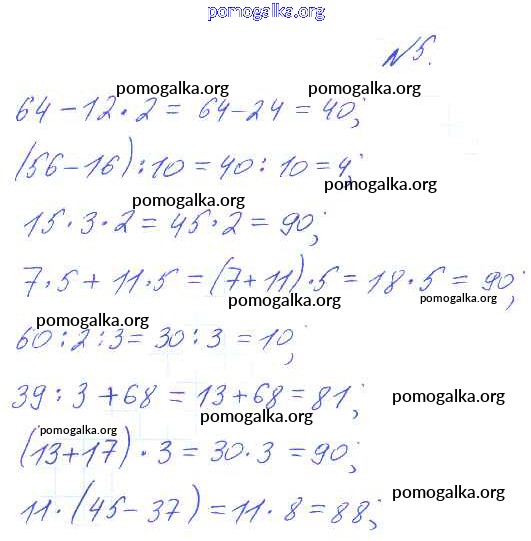 pomogalka.org
N5.
pomogalka.org pomogalka.org
64 - 12 · 2 = 64 - 24 = 40;
(56 - 16) : 10 = 40 : 10 = 4;
pomogalka.org
pomogalka.org
15 · 3 · 2 = 45 · 2 = 90;
7 · 5 + 11 · 5 = (7 + 11) · 5 = 18 · 5 = 90;
pomogalka.org pomogalka.org
pomogalka.org
60 : 2 : 3 = 30 : 3 = 10;
39 : 3 + 68 = 13 + 68 = 81;
pomogalka.org
pomogalka.org
pomogalka.org
(13 + 17) · 3 = 30 · 3 = 90;
pomogalka.org
11 · (45 - 37) = 11 · 8 = 88;